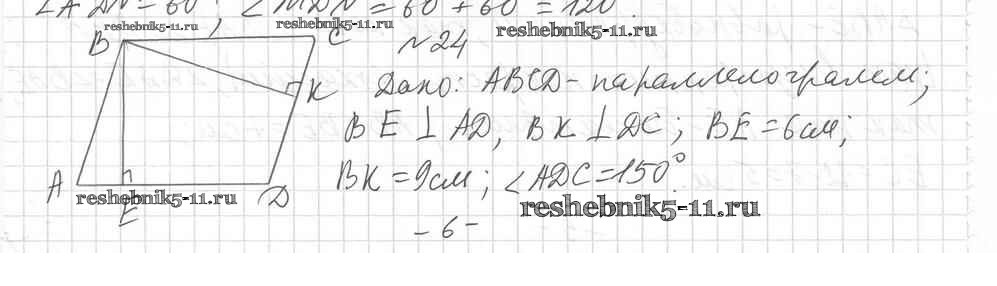 ∠ADN=60°; ∠MDN=60+60=120°.
reshebnik5-11.ru
reshebnik5-11.ru
reshebnik5-11.ru
B C
K
A D
E
reshebnik5-11.ru
№24
Дано: ABCD-параллелограмм;
BE⊥AD, BK⊥DC; BE=6см;
BK=9см; ∠ADC=150°.
reshebnik5-11.ru
-6-